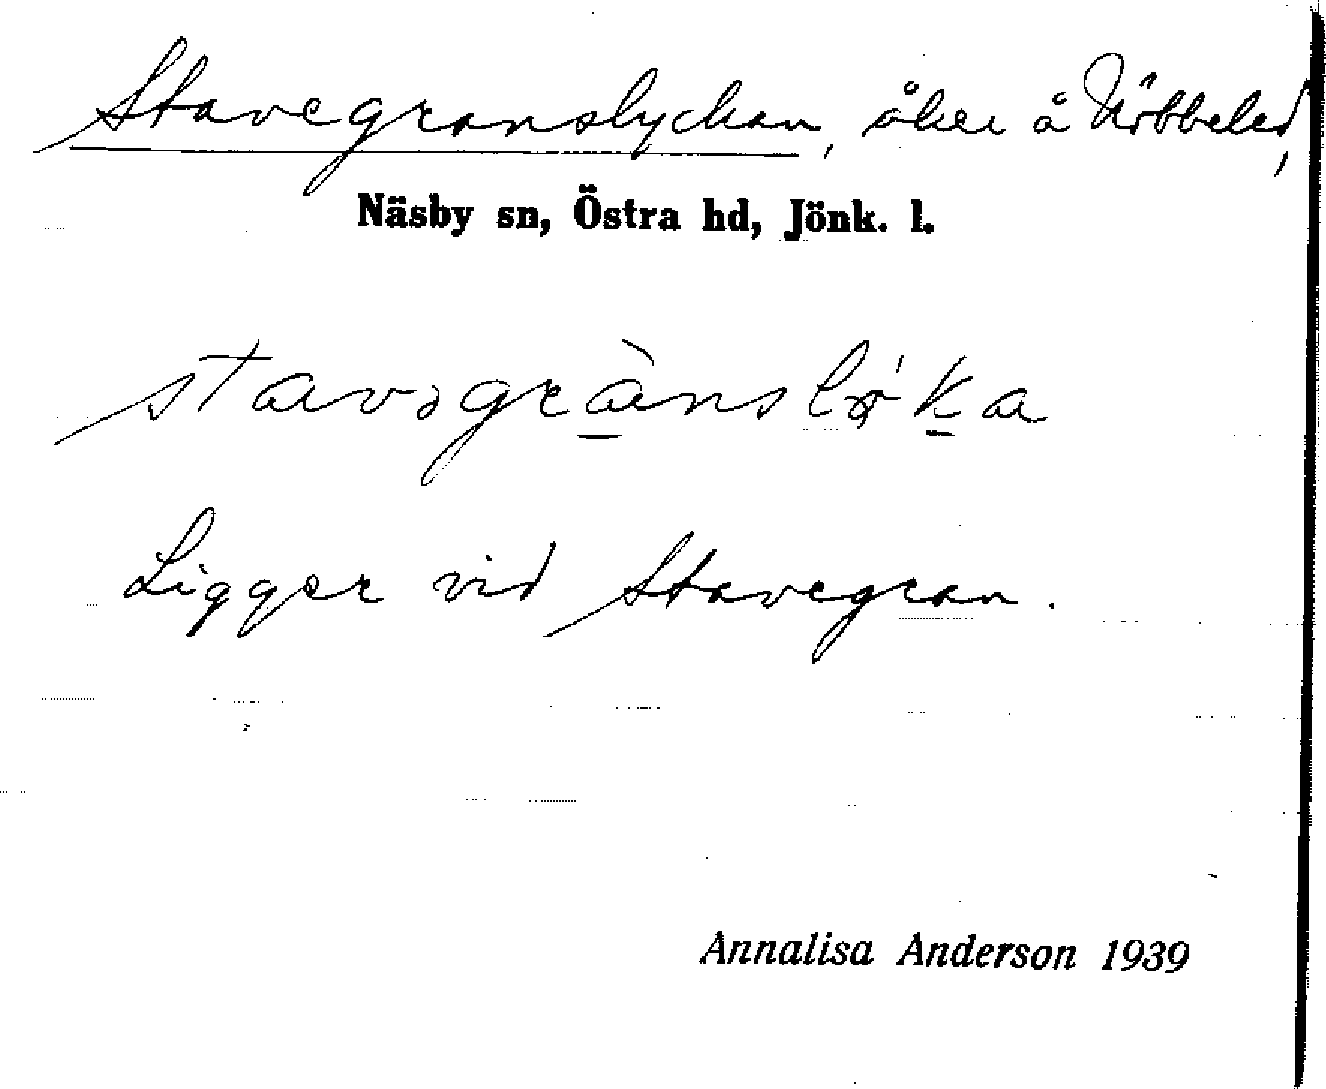 Stavegranslyckan, åker å Nöbbeled,
Näsby sn, Östra hd, Jönk. l.
stavəgrànsløka
Ligger vid Stavegran.
Annalisa Anderson 1939